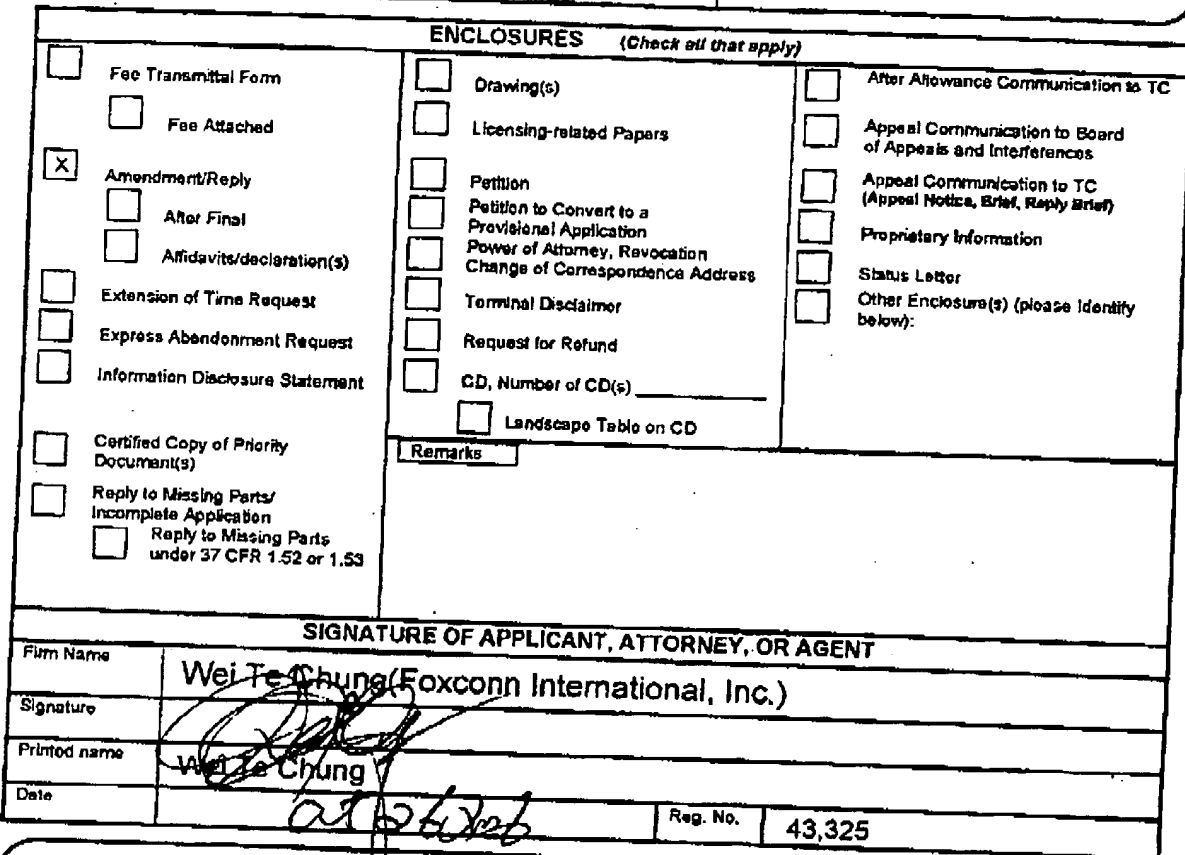 ENCLOSURES (Check all that apply)
Fee Transmittal Form
Fee Attached
X
Amendment/Reply
After Final
Affidavits/declaration(s)
Extension of Time Request
Express Abandonment Request
Information Disclosure Statement
Certified Copy of Priority
Document(s)
Reply to Missing Parts/
Incomplete Application
Reply to Missing Parts
under 37 CFR 1.52 or 1.53
Drawing(s)
Licensing-related Papers
Petition
Petition to Convert to a
Provisional Application
Power of Attorney, Revocation
Change of Correspondence Address
Terminal Disclaimer
Request for Refund
CD, Number of CD(s)
Landscape Table on CD
After Allowance Communication to TC
Appeal Communication to Board
of Appeals and Interferences
Appeal Communication to TC
(Appeal Notice, Brief, Reply Brief)
Proprietary Information
Status Letter
Other Enclosure(s) (please Identify
below):
Remarks
SIGNATURE OF APPLICANT, ATTORNEY, OR AGENT
Firm Name
Wei Te Chung(Foxconn International, Inc.)
Signature
Printed name
Wei Te Chung
Date
Reg. No.
43,325